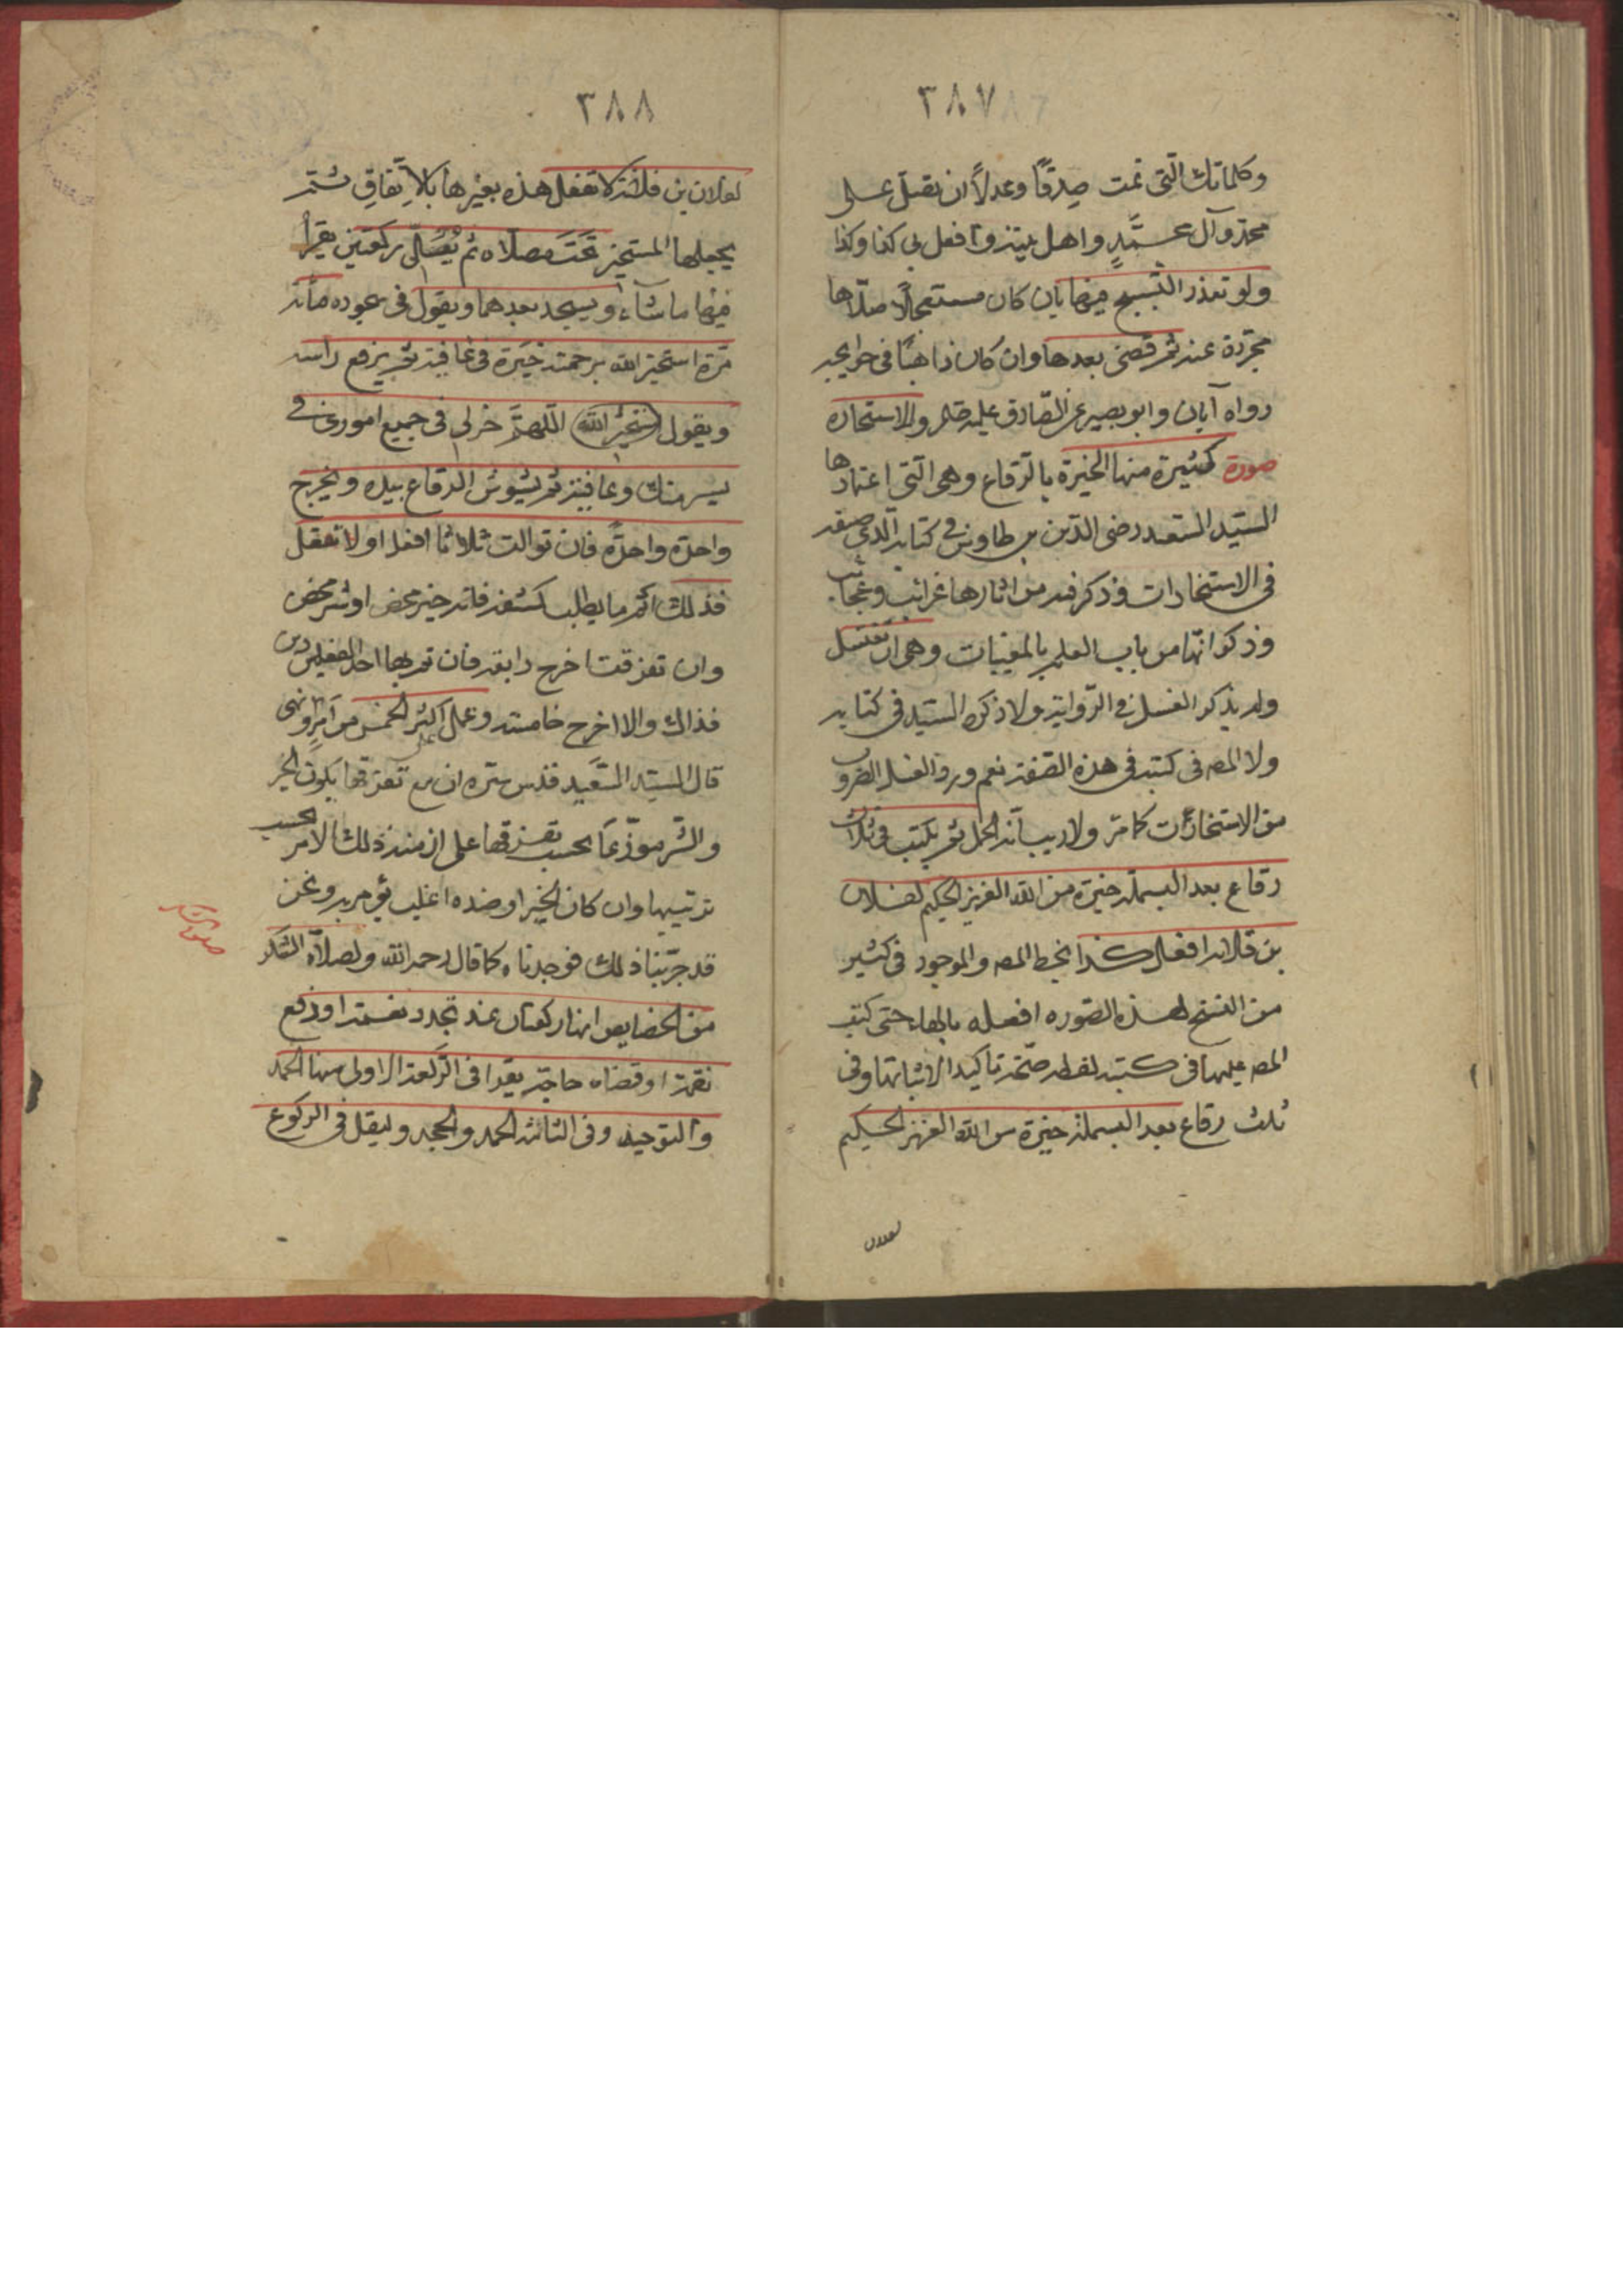 ٣٨٧
وكلماتك التى تمت صدقًا وعدلاً ان تصل على
محمد وآل محمدٍ واهل بيته وافعل بى كذا وكذا
ولو تعذر التسبيح فيها بان كان مستعجلاً صلاها
مجردة عنه ثم قضى بعدها وان كان ذاهبًا فى حوايجه
رواه آبان وابو بصير عن الصّادق عليه وللاستخاره
صورة كثيرة منها الخيرة بالرّقاع وهى التى اعتمادها
السيّد السّعيد رضى الدّين بن طاوس فى كتابه الّذى صنفه
فى الاستخارات وذكر فيه من اثارها غرائب وعجائب
وذكر انّها من باب العلم بالمغيبات وهى ان تغتسل
ولم يذكر الغسل فى الرّواية ولا ذكره السيّد فى كتابه
ولا المص فى كتبه فى هذه الصّفة نعم ورد الغسل لضروب
من الاستخارات كما مرّ ولا ريب انّه اكمل ثم يكتب فى ثلاث
رقاع بعد البسملة خيرة من الله العزيز الحكيم لفلان
بن فلانه افعل كذا بخط المص والموجود فى كثير
من النسخ لهذه الصّوره افعله بالهاء حتى كتب
المص عليها فى كتبه لفظه صحّ تاكيدا لاثباتها وفى
ثلث رقاع بعد البسملة خيرة من الله العزيز الحكيم
لفلان
٣٨٨
لفلان بن فلانة لا تفعل هذه بغيرها بالاتّفاق ثم
يجعلها المستخير تحت مصلاه ثم يصلّى ركعتين يقرأ
فيهما ما شآء ويسجد بعدهما ويقول فى سجوده مأئه
مرّة استخير الله برحمته خيَرة فى عافية ثم يرفع راسه
ويقول استخير الله اللّهمَّ خر لى فى جميع امورى فى
يسر منك وعافية ثم يشوش الرقاع بيده ويخرج
واحدة واحدة فان توالت ثلاثًا افعل او لا تفعل
فذلك اتم ما يطلب كشفه فانه خير محض او شر محض
وان تفرقت اخرج رابعه فان تم بها احد
فذاك والا اخرج خامسته وعمل على اكثر الخمس من امرٍ ونهى
قال السيّد السّعيد قدس سره ان مع تفرقها يكون الخير
والشّر موزّعًا بحسب تفرقها على ازمنة ذلك الامر بحسب
ترتيبها وان كان الخير او ضده اغلب ونحن
قد جرّبنا ذلك فوجدناه كما قال رحمه الله ولصلاة الشكر
صلوة الشكر
من الخصايص انها ركعتان عند تجدد نعمة او دفع
نقمة او قضاء حاجة يقرا فى الرّكعة الاولى منها الحمد
والتوحيد وفى الثانية الحمد والجحد وليقل فى الركوع